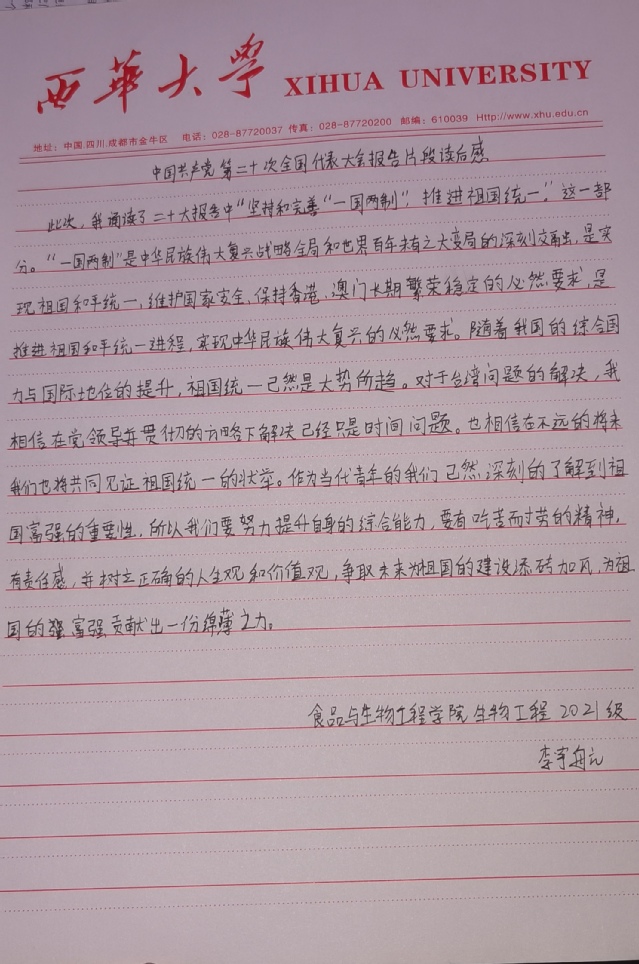 西華大學 XIHUA UNIVERSITY
地址：中国.四川.成都市金牛区 电话：028-87720037 传真：028-87720200 邮编：610039 Http://www.xhu.edu.cn
中国共产党第二十次全国代表大会报告片段读后感
此次，我诵读了二十大报告中“坚持和完善“一国两制”，推进祖国统一”这一部
分。“一国两制”是中华民族伟大复兴战略全局和世界百年未有之大变局的深刻交融出，是实
现祖国和平统一，维护国家安全，保持香港、澳门长期繁荣稳定的必然要求，是
推进祖国和平统一进程，实现中华民族伟大复兴的必然要求。随着我国的综合国
力与国际地位的提升，祖国统一已然是大势所趋。对于台湾问题的解决，我
相信在党领导并贯彻的方略下解决已经只是时间问题。也相信在不远的将来
我们也将共同见证祖国统一的状举。作为当代青年的我们已然深刻的了解到祖
国富强的重要性，所以我们要努力提升自身的综合能力，要有吃苦而寸劳的精神，
有责任感，并树立正确的人生观和价值观，争取未来为祖国的建设添砖加瓦，为祖
国的富强贡献出一份绵薄之力。
食品与生物工程学院 生物工程 2021级
李宇舟